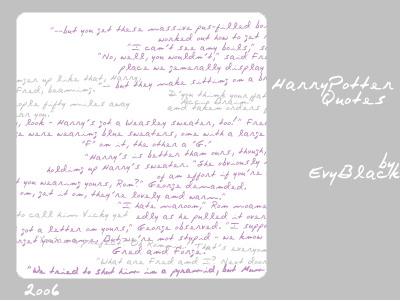 "--but you get these massive pus-filled bo
worked out how to get r
"I can't see any boils," s
"No, well, you wouldn't," said Fre
place we generally display
nger up like that, Harry,
"-- but they make sitting on a br
Fred, beaming.
I'd think your pa
ople fifty miles away
and taken orders
rr you."
, look - Harry's got a Weasley sweater, too!" Fred
e were wearing blue sweaters, one with a large
"F" on it, the other a "G."
"Harry's is better than ours, though,
holding up Harry's sweater. "She obviously
of an effort if you're
t you wearing yours, Ron?" George demanded.
on, get it on, they're lovely and warm."
"I hate maroon," Ron moane
to call him Vicky yet
edly as he pulled it over
got a letter on yours," George observed. "I suppo
rget your name. But we're not stupid - we know
Gred and Forge."
That's everyon
"What are Fred and I? Next door
"We tried to shut him in a pyramid, but Mum
HarryPotter
Quotes
by:
EvyBlack
2006